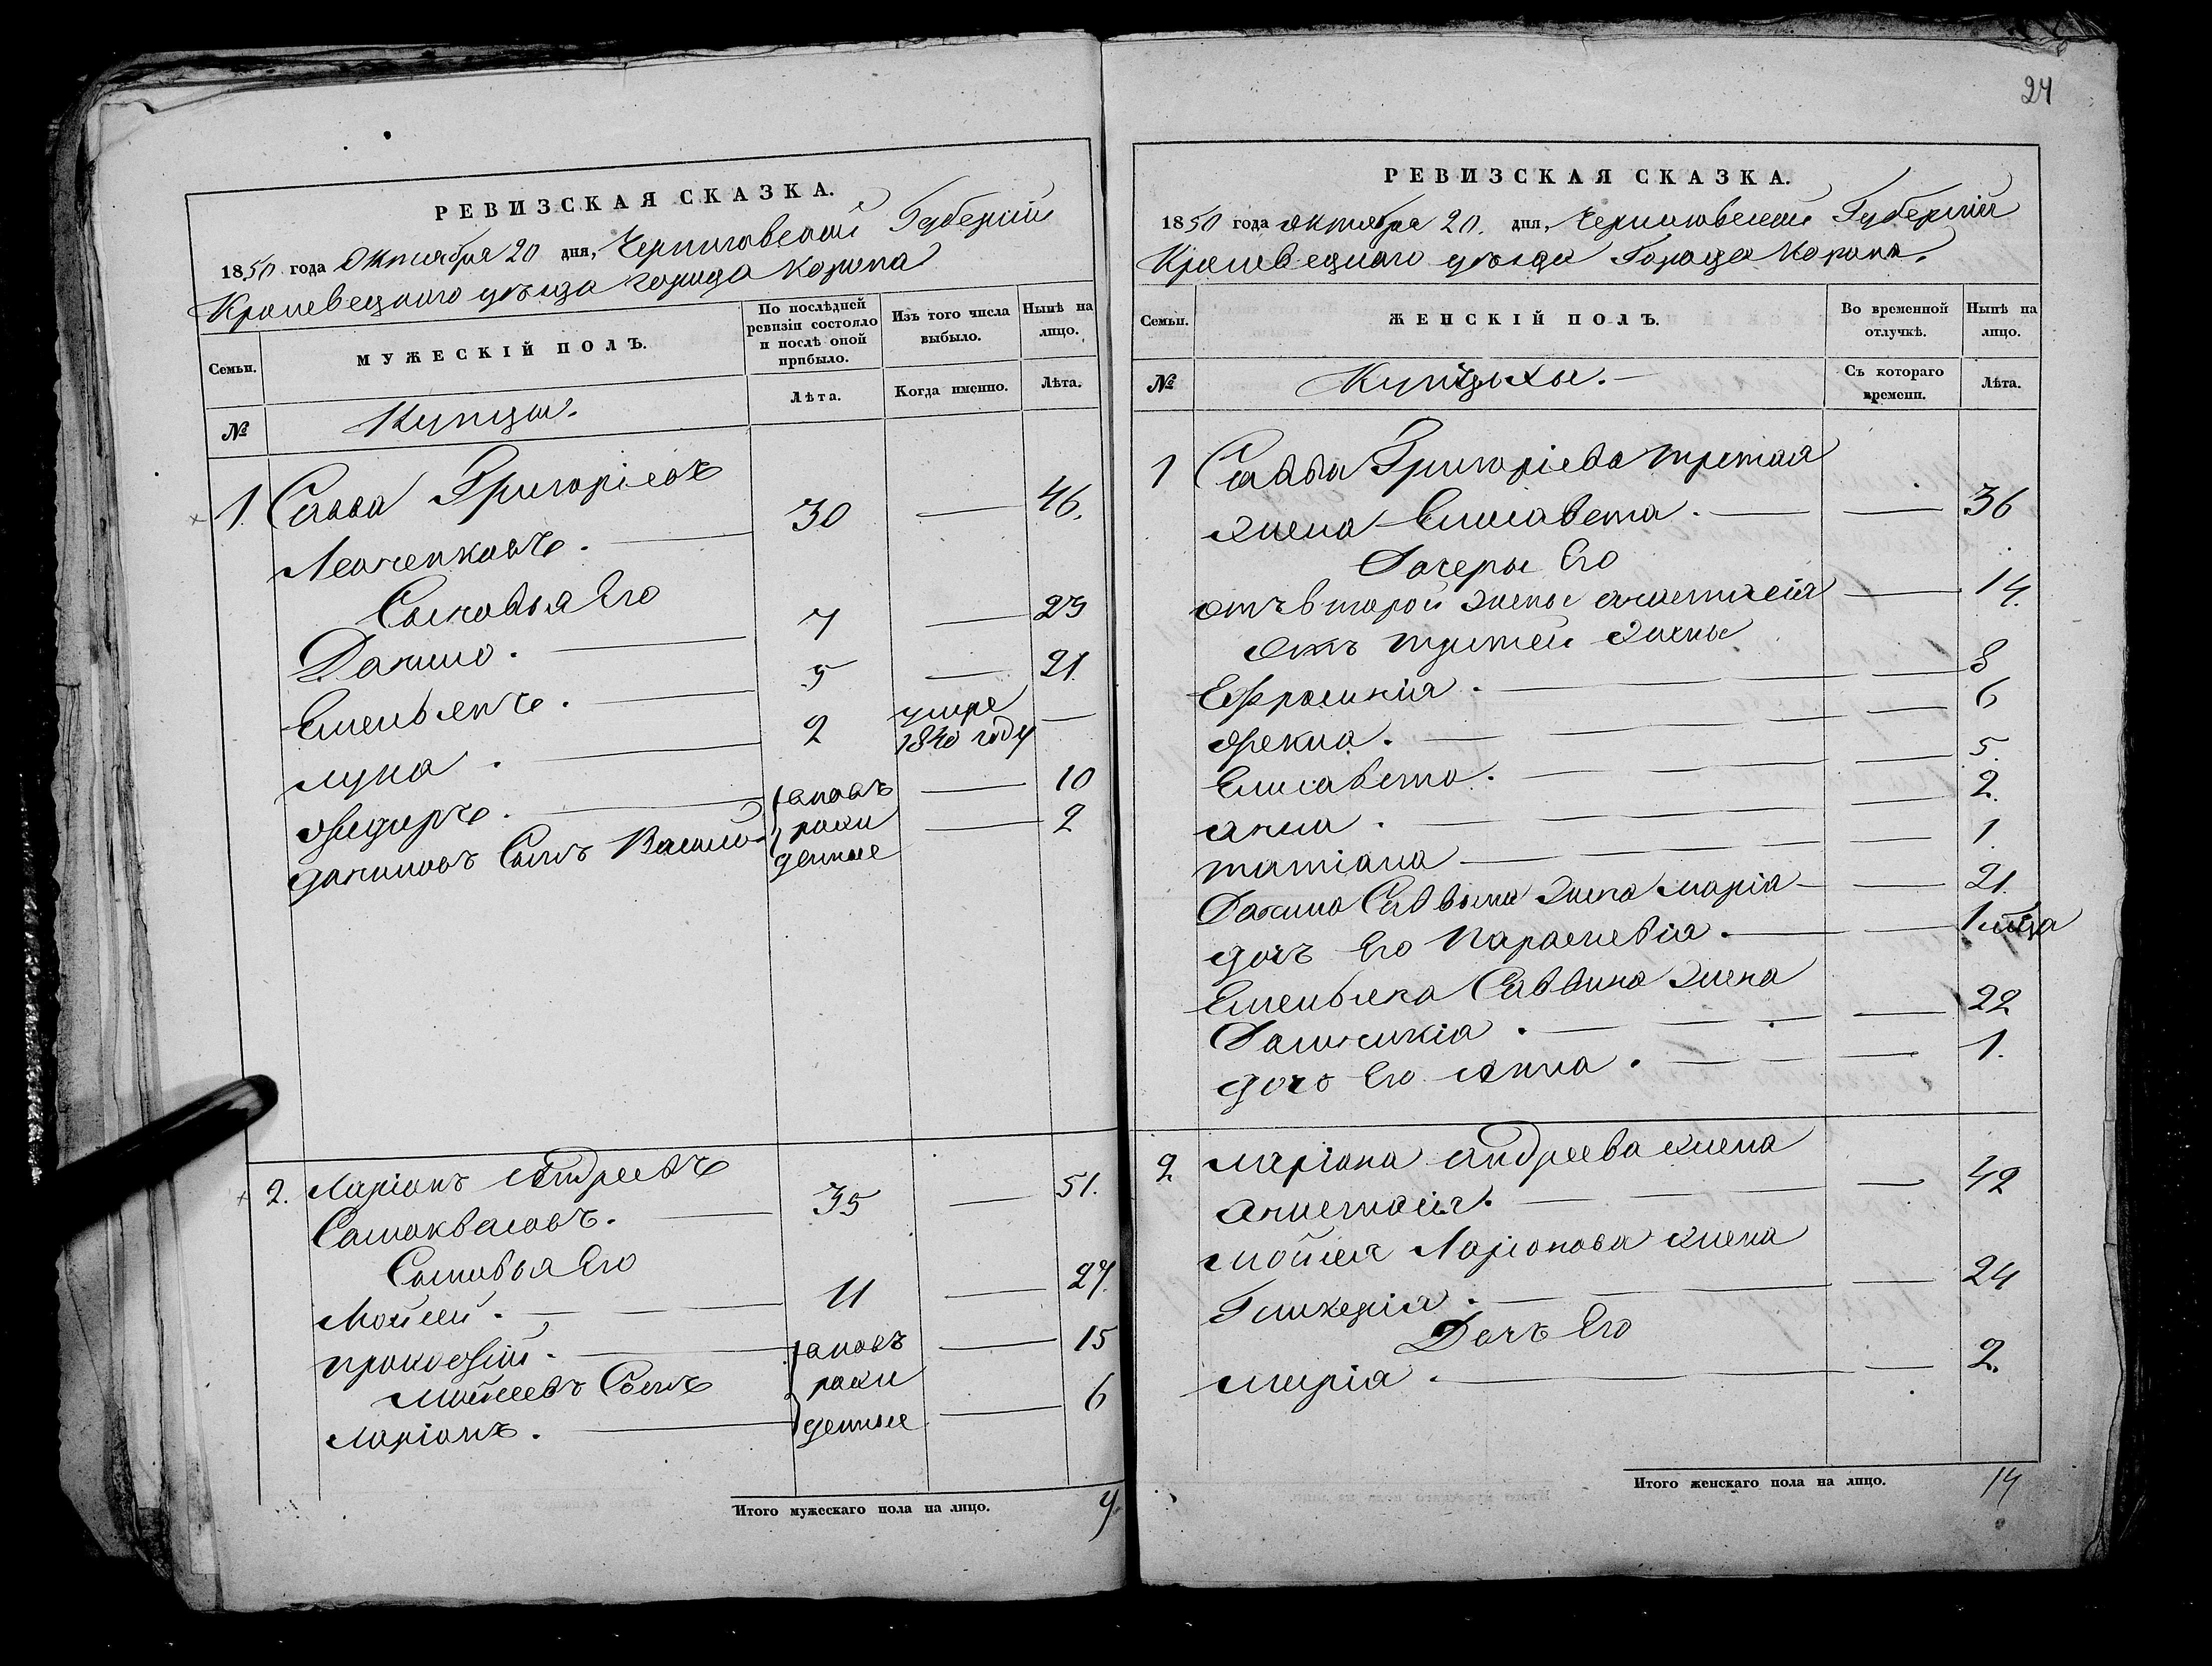 РЕВИЗСКАЯ СКАЗКА.
1850 года Октября 20 дня, Черниговской Губернии
Кролевецкаго уѣзда города Коропа
Семьи.
МУЖЕСКІЙ ПОЛЪ.
По послѣдней ревизіи состояло и послѣ оной прибыло.
Изъ того числа выбыло.
Нынѣ на лицо.
№
Купцы.
Лѣта.
Когда именно.
Лѣта.
1. Савва Григоріевъ
30 46.
Сыновья Его
Данило. 7 23
Емельянъ. 5 21.
Лука. 2 умре 1840 году
Ѳидиръ. вновь 10
Даниловъ Сынъ Василь рожденные 2
2. Ларіонъ Андреевъ
Самоквасовъ. 35 51.
Сыновья Его
Мойсей. 11 27.
Прокофій. вновь 15
Мойсеевъ Сынъ рож
Ларіонъ. денные 6
Итого мужескаго пола на лицо.
24
РЕВИЗСКАЯ СКАЗКА.
1850 года Октября 20. дня, Черниговской Губерніи
Кролевецкаго уѣзда Города Коропа.
Семьи.
ЖЕНСКІЙ ПОЛЪ.
Во временной отлучкѣ.
Нынѣ на лицо.
№
Купчихы.
Съ котораго времени.
Лѣта.
1 Саввы Григоріева третая
жена Елисавета. 36
Дочеры Его
отъ второй жены Анастасія 14.
отъ третей жены
Ефросинія. 8
Ѳекла. 6
Елисавета. 5.
Анна. 2.
Татіана 1.
Данила Саввына жена Марія 21.
дочъ Его Параскевія. 1 мѣсяца
Емельяна Саввина жена
22
дочь Его Анна. 1.
2 Ларіона Андреева жена
Анастасія. 42
Мойсея Ларіонова жена
Гликерія. 24
Дочъ Его
Марія. 2.
Итого женскаго пола на лицо. 14